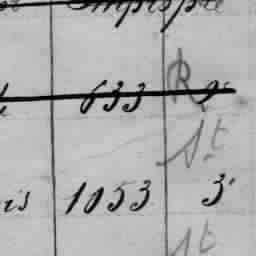 633 R 9
St
is 1053 3
St